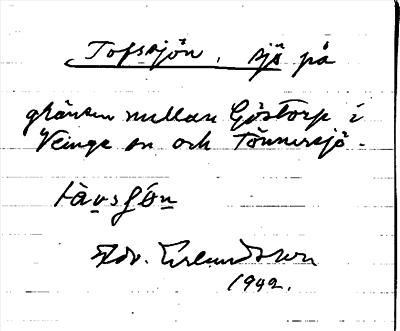 Tofssjön, sjö på
gränsen mellan Göstorp i
Veinge sn och Tönnersjö.
tàvsʃö́n
Edv. Erlandsson
1942.